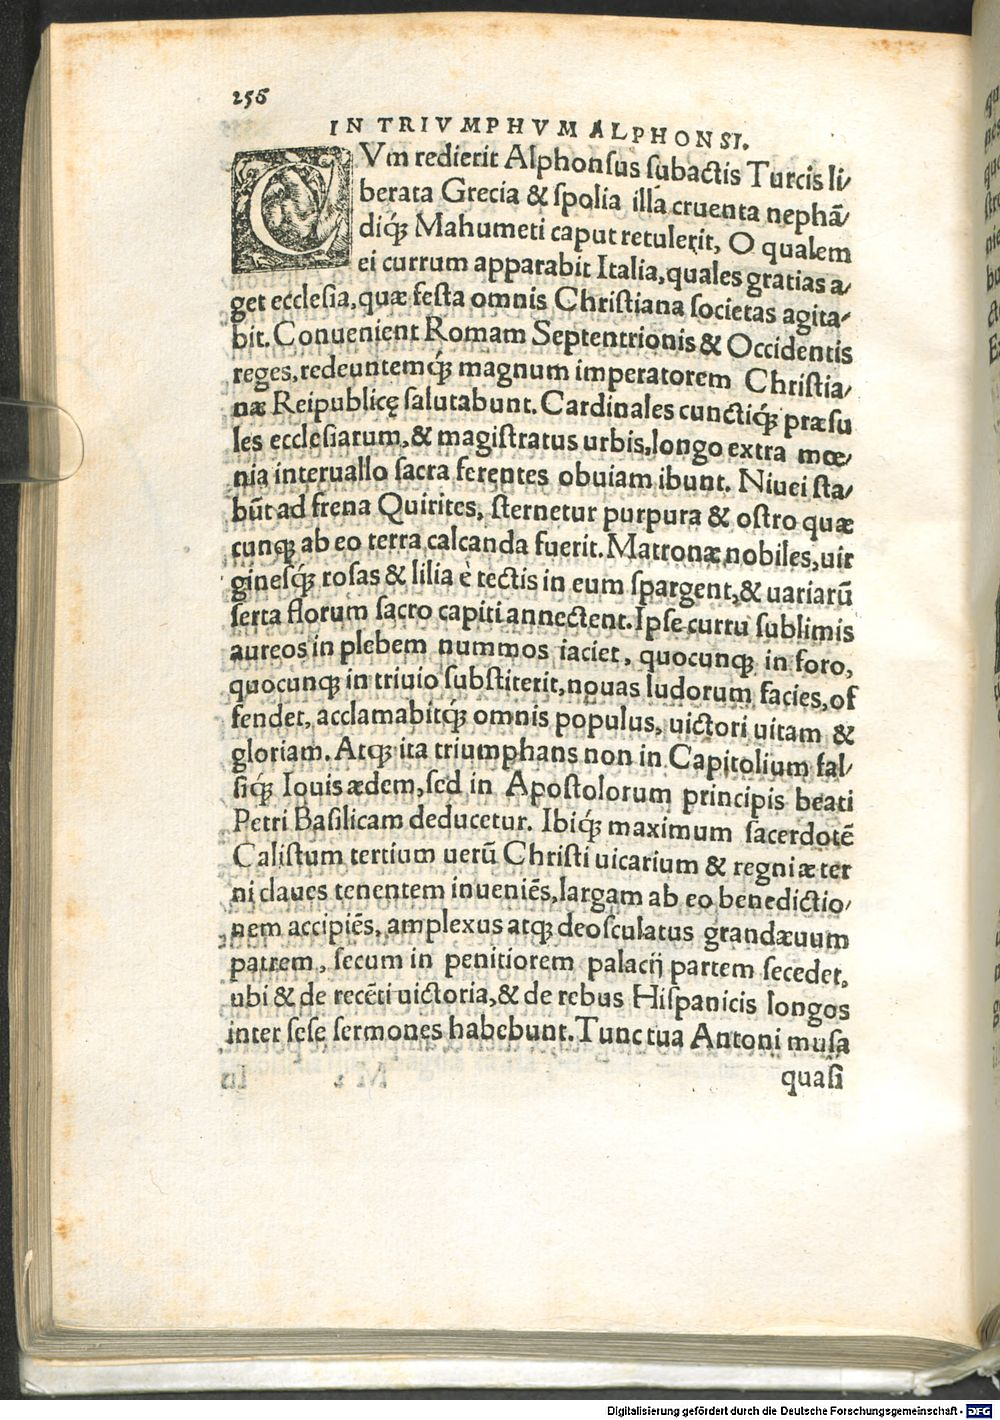 256
IN TRIVMPHVM ALPHONSI.
CVm redierit Alphonſus ſubactis Turcis li/
berata Grecia & ſpolia illa cruenta nephã/
diq́; Mahumeti caput retulerit, O qualem
ei currum apparabit Italia, quales gratias a/
get eccleſia, quæ feſta omnis Chriſtiana ſocietas agita/
bit. Conuenient Romam Septentrionis & Occidentis
reges, redeuntemq́; magnum imperatorem Chriſtia/
næ Reipublicę ſalutabunt. Cardinales cunctiq́; præſu
les eccleſiarum, & magiſtratus urbis, longo extra mœ/
nia interuallo ſacra ferentes obuiam ibunt. Niuei ſta/
bũt ad frena Quirites, ſternetur purpura & oſtro quæ
cunq; ab eo terra calcanda fuerit. Matronæ nobiles, uir
gineſq́; roſas & lilia è tectis in eum ſpargent, & uariarũ
ſerta florum ſacro capiti annectent. Ipſe curru ſublimis
aureos in plebem nummos iaciet, quocunq; in foro,
quocunq; in triuio ſubſtiterit, nouas ludorum facies, of
fendet, acclamabitq́; omnis populus, uictori uitam &
gloriam. Atq; ita triumphans non in Capitolium fal/
ſiq́; Iouis ædem, ſed in Apoſtolorum principis beati
Petri Baſilicam deducetur. Ibiq́; maximum ſacerdotẽ
Caliſtum tertium uerũ Chriſti uicarium & regni æter
ni claues tenentem inueniẽs, largam ab eo benedictio/
nem accipiẽs, amplexus atq; deoſculatus grandæuum
patrem, ſecum in penitiorem palacij partem ſecedet,
ubi & de recẽti uictoria, & de rebus Hiſpanicis longos
inter ſeſe ſermones habebunt. Tunc tua Antoni muſa
quaſi
Digitalisierung gefördert durch die Deutsche Forschungsgemeinschaft - DFG